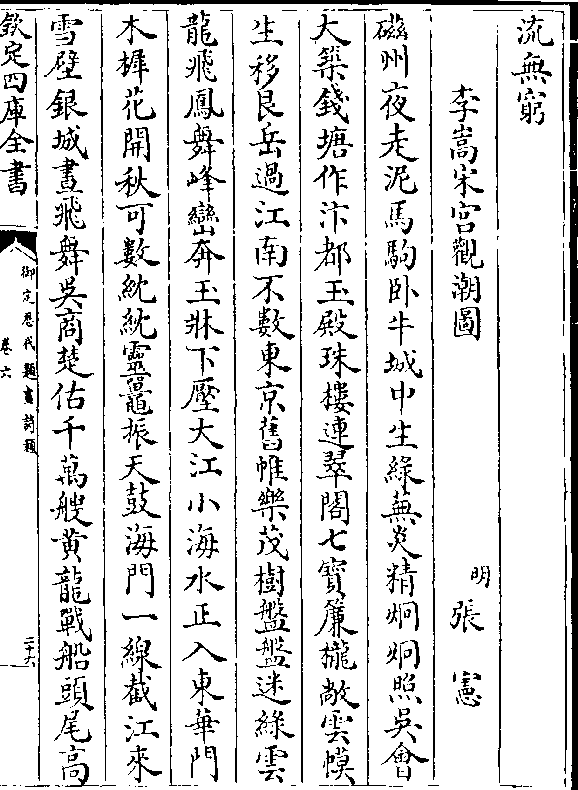 流無窮
李嵩宋宫觀潮圖
明張憲
磁州夜走泥馬駒卧牛城中生緑蕪炎精炯炯照吳會
大築錢塘作汴都玉殿珠樓連翠閣七寶簾櫳敞雲幙
生移艮岳過江南不數東京舊帷樂茂樹盤盤迷緑雲
龍飛鳳舞峰巒奔玉牀下壓大江小海水正入東華門
木樨花開秋可數紞紞靈鼉振天鼓海門一線截江來
雪壁銀城晝飛舞吳商楚估千萬艘黄龍戰船頭尾高
欽定四庫全書
御定歴代題畫詩類
卷六
二十六